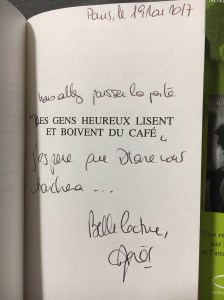 Paris, le 19 Mai 2017
Vous allez pousser la porte
"DES GENS HEUREUX LISENT
ET BOIVENT DU CAFÉ"
J'espère que Diane vous
touchera ...
Belle lecture,
Une re
sur
et l'am